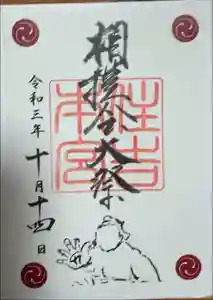 相撲会大祭
住吉
本宮
令和三年十月十四日